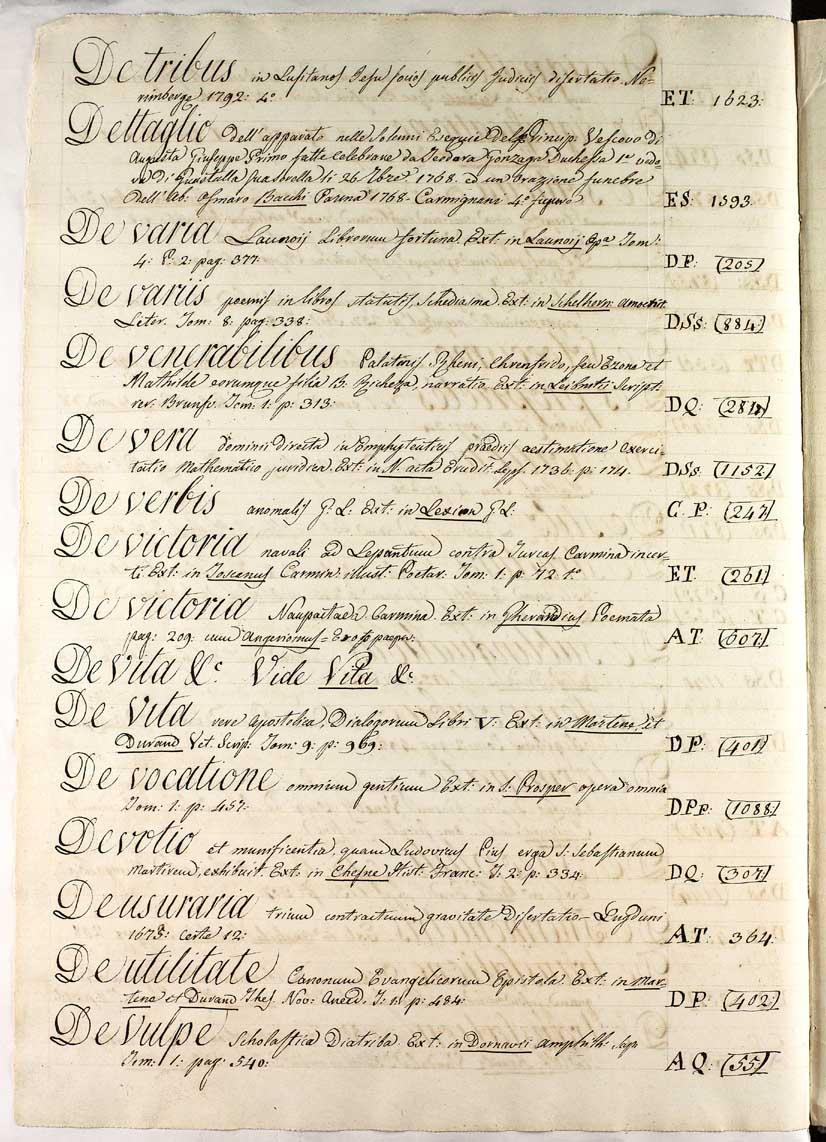 De tribus in Lusitanos Jesu socios publicis Judiciis disertatio. No-
rimberge 1792: 4º
ET: 1623:
Dettaglio dell'apparato nelle Solenni Esequie del Princip: Vescovo di
Augusta Giuseppe Primo fatte celebrare da Teodora Gonzaga Duchessa 1ª vedo-
va di Guastalla sua sorella li 26 1768. ed un'orazione funebre
dell'Ab: Osmaro Bacchi Parma 1768- Carmignani 4º figurato
ES: 1593:
De varia Launoij Librorum fortuna. Ext: in Launoij Tom:
4: P: 2: pag: 377:
DP: (205)
De variis poenis in libros statutis, Schediasma. Ext: in Schelhorn: amoenit.
Liter. Tom: 8: pag: 338:
DSs: (884)
De venerabilibus Palatinis Rheni, Ehrenfrido, seu Ezone et
Mathilde eorumque filia B: Richeza, narratio. Ext: in Leibnitii Script:
rer: Brunsv: Tom: 1: p: 313:
DQ: (284)
De vera dominii directi in Emphyteuticis praediis aestimatione exerci-
tatio Mathematico juridica. Ext: in N. acta Erudit: Lips: 1736: p: 174.
DSs (1152)
De verbis anomalis G: L: Ext: in Lexicon G L:
C. P: (247)
De victoria navali ad Lepantum contra Turcas Carmina incer-
ti Ext: in Toscanus Carmin: illust: Poetar: Tom: 1: p: 72 tº
ET (261)
De victoria Naupactaea Carmina Ext: in Gherardius Poemata
pag: 209: cum Angerianus=
AT: (607)
De vita &c: Vide Vita &c:
De vita vere Apostolica, Dialogorum Libri V: Ext: in Martene, et
Durand Vet: Scrip: Tom: 9: p: 969:
DP: (401)
De vocatione omnium gentium Ext: in S: Prosper opera omnia
Tom: 1: p: 457:
DPp: (1088)
Devotio et munificentia, quam Ludovicus Pius erga S: Sebastianum
Martirem, exhibuit. Ext: in Chesne Hist: Franc: T: 2: p: 334:
DQ: (307)
De usuraria trium contractuum gravitate Disertatio- Lugduni
1673: certe 12:
AT: 364
De utilitate Canonum Evangelicorum Epistola. Ext: in Mar-
tene et Durand Thes: Nov: Anecd: T: p: 484:
DP: (402)
De Vulpe Scholastica Diatriba. Ext: in Dornavii Amphith:
Tom: 1: pag: 540:
AQ: (55)